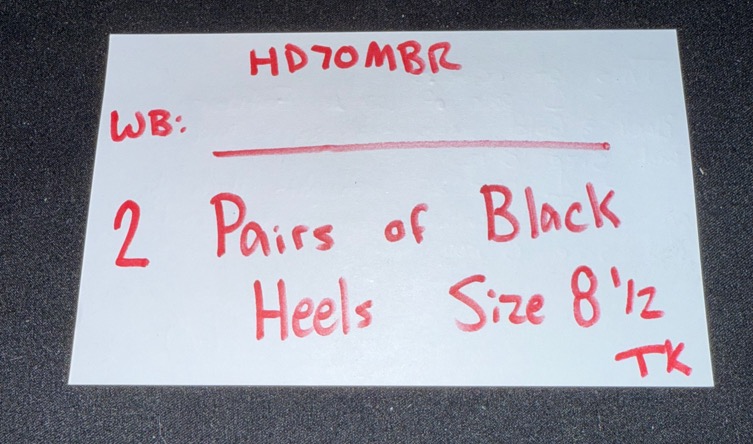 HD70MBR
WB:
2 Pairs of Black
Heels Size 8 1/2
TK